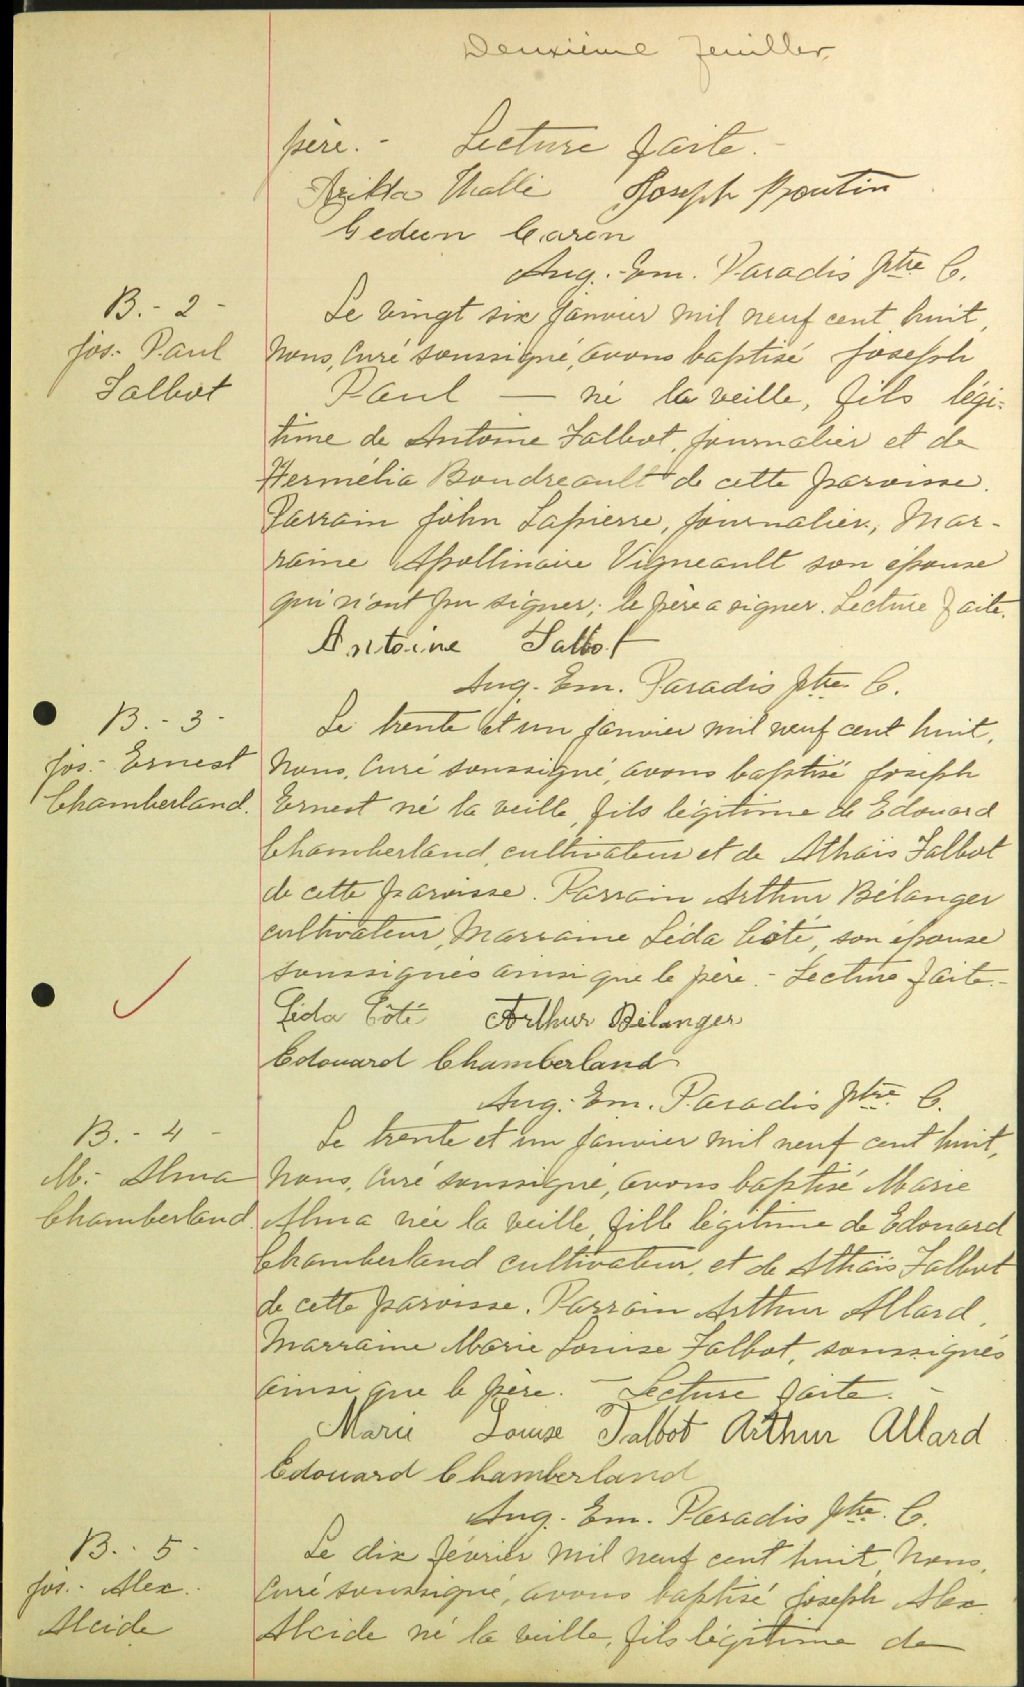 Deuxième feuillet.
père. - Lecture faite. -
Joseph Boutin
Gedeon Caron
Aug. - Em. Paradis Ptre C.
B. - 2 -
Jos. - Paul
Talbot
Le vingt six janvier mil neuf cent huit,
Nous, Curé soussigné, avons baptisé Joseph
Paul — né la veille, fils légi-
time de Antoine Talbot, journalier et de
Hermélia Boudreault de cette paroisse.
Parrain John Lapierre, journalier, Mar-
raine Apollinaire Vigneault son épouse
qui n'ont pu signer; le père a signer. Lecture faite.
Antoine Talbot
Aug. - Em. Paradis Ptre C.
B. - 3 -
Jos. - Ernest
Chamberland.
Le trente et un janvier mil neuf cent huit,
Nous, Curé soussigné, avons baptisé Joseph
Ernest né la veille, fils légitime de Edouard
Chamberland, cultivateur et de Athaïs Talbot
de cette paroisse. Parrain Arthur Bélanger
cultivateur, Marraine Léda Côté, son épouse
soussignés ainsi que le père. - Lecture faite. -
Léda Côté Arthur Bélanger
Edouard Chamberland
Aug. - Em. Paradis Ptre. C.
B. - 4 -
M. - Alma
Chamberland.
Le trente et un janvier mil neuf cent huit,
Nous, Curé soussigné, avons baptisé Marie
Alma née la veille, fille légitime de Edouard
Chamberland cultivateur, et de Athaïs Talbot
de cette paroisse. Parrain Arthur Allard,
Marraine Marie Louise Talbot, soussignés
ainsi que le père. - Lecture faite. -
Marie Louise Talbot Arthur Allard
Edouard Chamberland
Aug. - Em. Paradis Ptre. C.
B. - 5 -
Jos. - Alex. -
Alcide
Le dix février mil neuf cent huit, Nous,
Curé soussigné, avons baptisé Joseph Alex
Alcide né la veille, fils légitime de